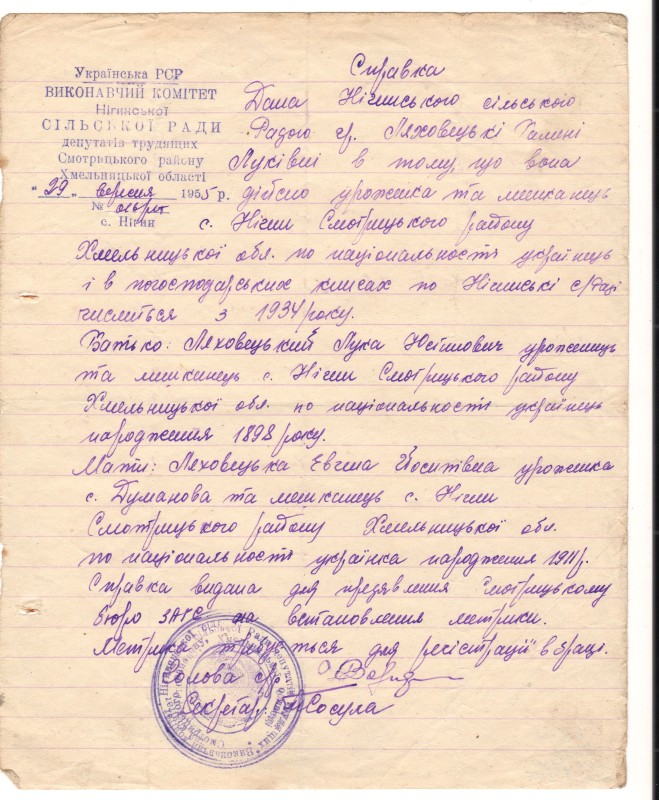 Українська РСР
ВИКОНАВЧИЙ КОМІТЕТ
Нігинської
СІЛЬСЬКОЇ РАДИ
депутатів трудящих
Смотрицького району
Хмельницької області
"29" вересня 1955 р.
№
с. Нігин
Справка
Дана Нігинського сільського
Радою гр. Ляховецькі Галині
Луківні в тому, що вона
дійсно урожинка та мешканець
с. Нігин Смотрицького району
Хмельницької обл. по національності українець
і в погосподарських книгах по Нігинські с/раді
числиться з 1934 року.
Батько: Ляховецький Лука уроженець
та мешканець с. Нігин Смотрицького району
Хмельницької обл. по національності українець
народження 1898 року.
Мати: Ляховецька Евгина Йоситівна урожинка
с. Думанова та мешканець с. Нігин
Смотрицького району Хмельницької обл.
по національності українка народження 1911 р.
Справка видана для предявлення Смотрицькому
бюро ЗАГС на встановлення метрики.
Метрика требується для регістрації в браці.
Голова с/р
Секретар Сосула